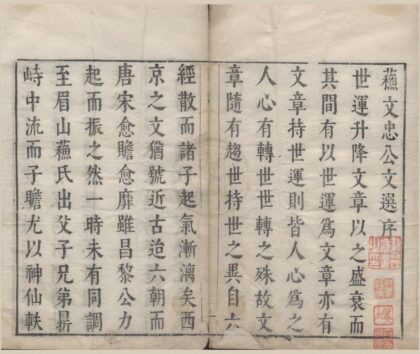 蘇文忠公文選序
世運升降文章以之盛衰而
其間有以世運為文章亦有
文章持世運則皆人心為之
人心有轉世世轉之殊故文
章隨有趨世持世之異自六
經散而諸子起氣漸漓矣西
京之文猶號近古迨六朝而
唐宋愈贍愈靡雖昌黎公力
起而振之然一時未有同調
至眉山蘇氏出父子兄弟鼎
峙中流而子瞻尤以神仙軼